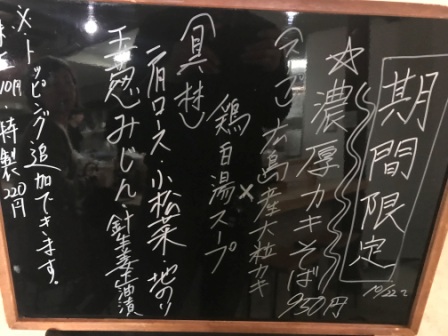 期間限定
10/22~
☆濃厚カキそば 950円
広島産大粒カキ
×
鶏白湯スープ
(具材)
肩ロース・小松菜・地のり
玉葱みじん・針生姜
油漬
※トッピング追加できます。
特製220円